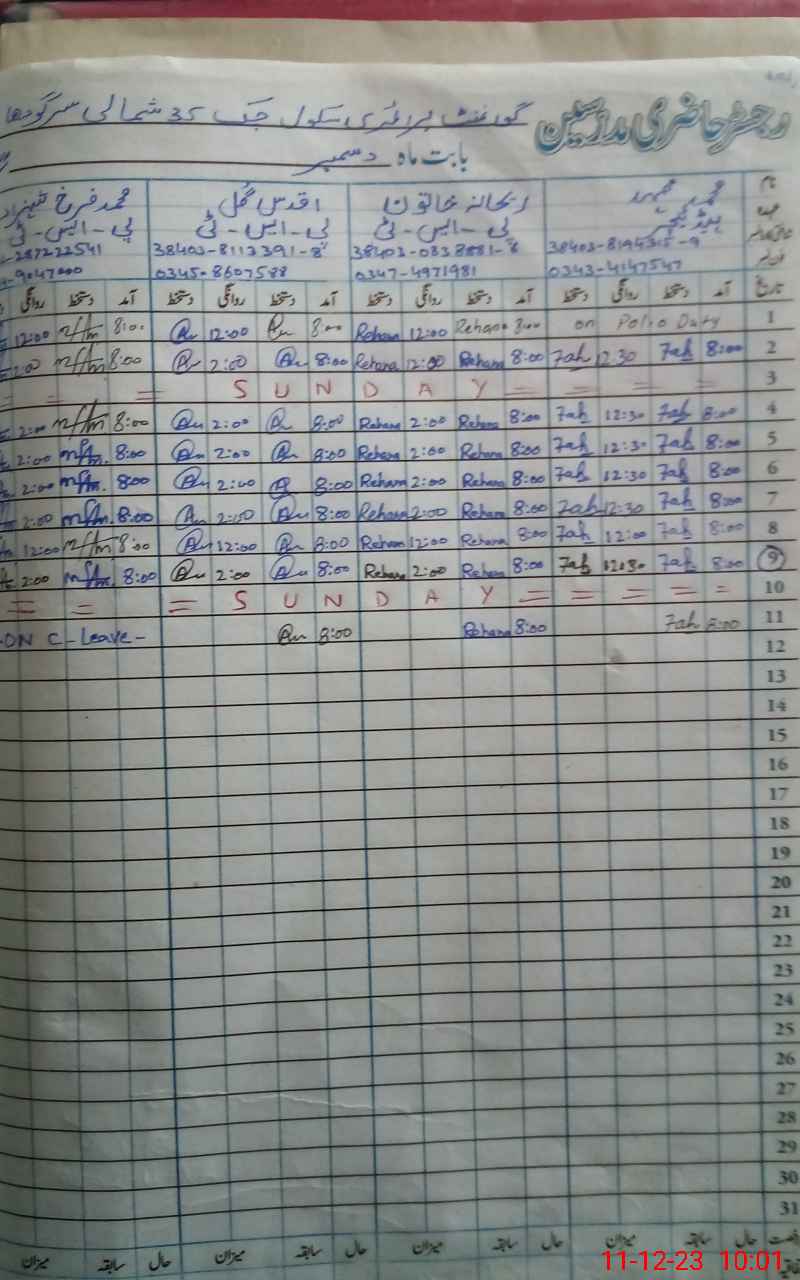 رجسٹر حاضری مدرسین گورنمنٹ پرائمری سکول چک 35 شمالی سرگودھا
بابت ماہ دسمبر
نام محمد ریحانہ خاتون اقدس گل محمد فرخ شہزاد
عہدہ ہیڈ ٹیچر پی-ایس-ٹی پی-ایس-ٹی پی-ایس-ٹی
38403-8194315-9 38403-0338881-8 38403-8113391-8 287222541
0343-4147547 0347-4971981 0345-8607588 9047000
تاریخ آمد دستخط روانگی دستخط آمد دستخط روانگی دستخط آمد دستخط روانگی دستخط آمد دستخط روانگی
1 on Polio Duty 8:00 Rehana 12:00 Rehana 8:00 12:00 8:00 12:00
2 8:00 7ah 12:30 7ah 8:00 Rehana 12:00 Rehana 8:00 2:00 8:00 2:00
3 = = = = = S U N D A Y = = =
4 8:00 7ah 12:30 7ah 8:00 Rehana 2:00 Rehana 8:00 2:00 8:00 2:00
5 8:00 7ah 12:30 7ah 8:00 Rehana 2:00 Rehana 8:00 2:00 8:00 2:00
6 8:00 7ah 12:30 7ah 8:00 Rehana 2:00 Rehana 8:00 2:00 8:00 2:00
7 8:00 7ah 12:30 7ah 8:00 Rehana 2:00 Rehana 8:00 2:00 8:00 2:00
8 8:00 7ah 12:00 7ah 8:00 Rehana 12:00 Rehana 8:00 12:00 8:00 12:00
9 8:00 7ah 12:30 7ah 8:00 Rehana 2:00 Rehana 8:00 2:00 8:00 2:00
10 = = = = = S U N D A Y = = =
11 8:00 7ah 8:00 Rehana 8:00 ON C-Leave-
12
13
14
15
16
17
18
19
20
21
22
23
24
25
26
27
28
29
30
31
حال سابقہ میزان حال سابقہ میزان حال سابقہ میزان حال سابقہ میزان
11-12-23 10:01